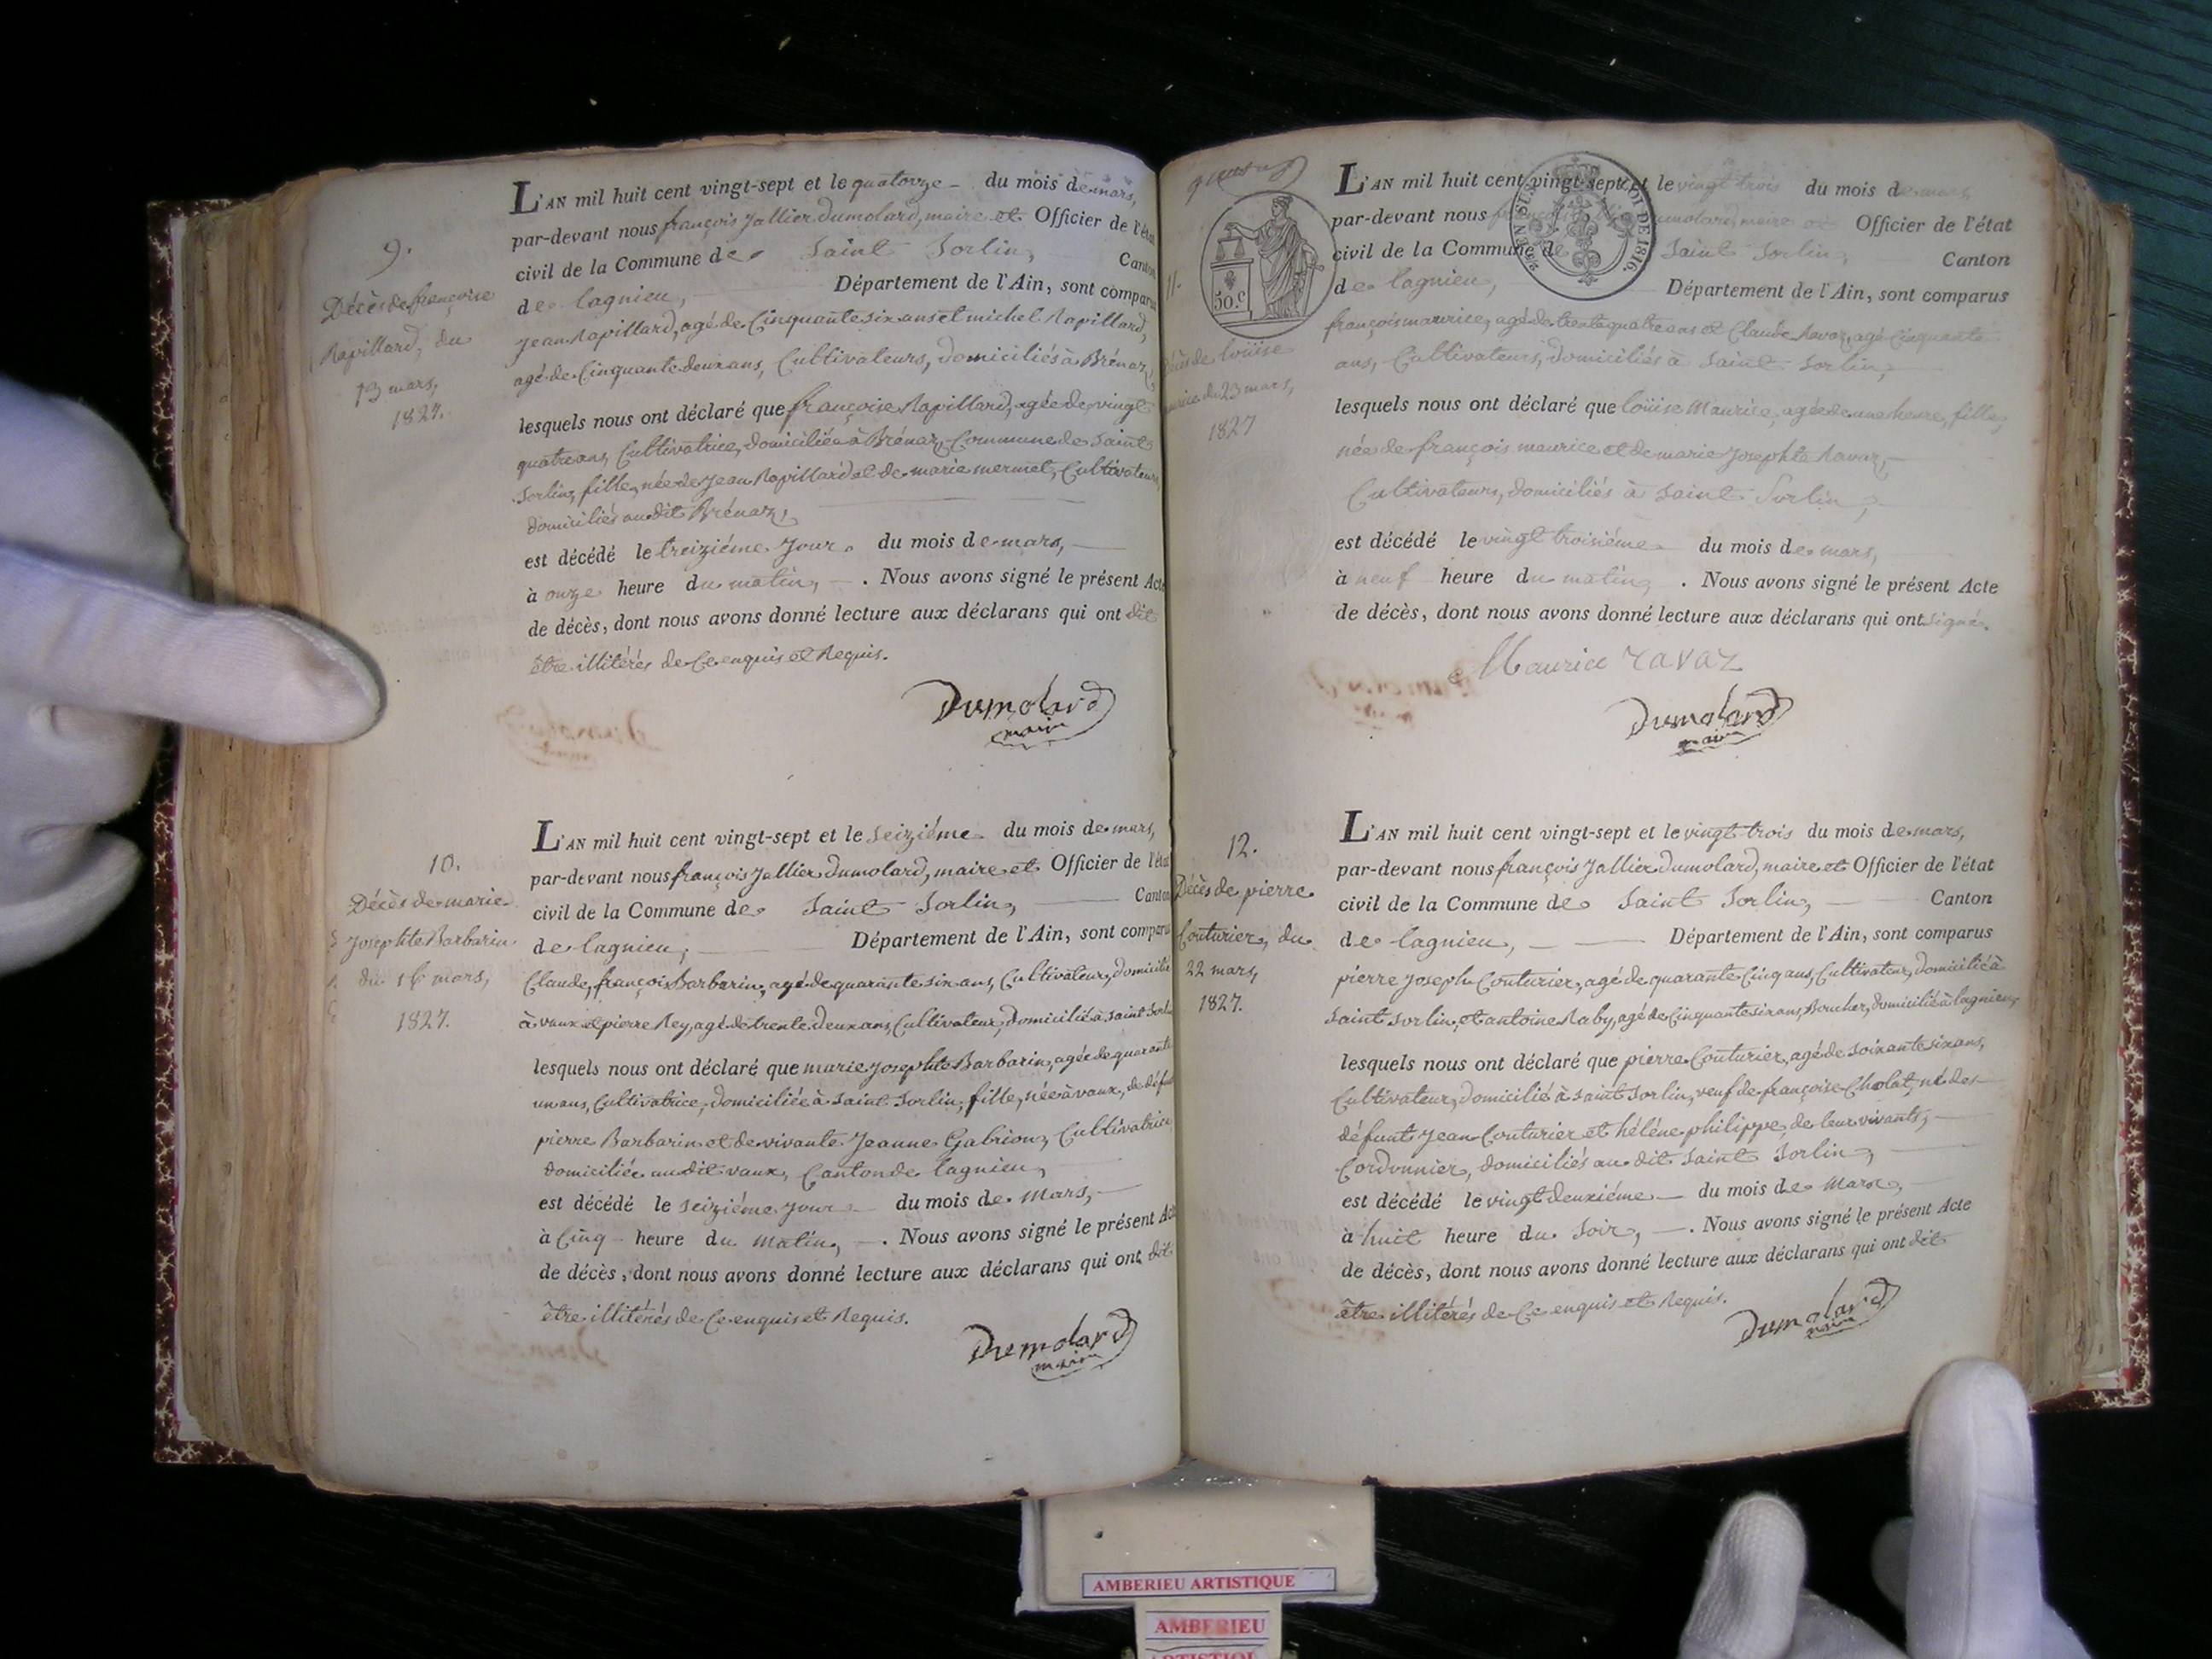 9.
Décès de françoise
Rapillard, du
13 mars,
1827.
L'AN mil huit cent vingt-sept et le quatorze du mois de mars,
par-devant nous françois Jallier Dumolard, maire et Officier de l'état
civil de la Commune de Saint Sorlin, Canton
de lagnieu, Département de l'Ain, sont comparus
Jean Rapillard, agé de Cinquante six ans et michel Rapillard,
agé de Cinquante deux ans, Cultivateurs, domiciliés à Brénaz,
lesquels nous ont déclaré que françoise Rapillard, agée de vingt
quatre ans, Cultivatrice, domiciliée à Brénaz, Commune de Saint
Sorlin, fille, née de Jean Rapillard et de marie mermet, Cultivateurs,
domiciliés au dit Brénaz,
est décédé le treiziéme Jour du mois de mars,
à onze heure du matin, . Nous avons signé le présent Acte
de décès, dont nous avons donné lecture aux déclarans qui ont dit
être illitérés de Ce enquis et Requis.
Dumolard
maire
10.
Décès de marie
Josephte Barbarin
du 16 mars,
1827.
L'AN mil huit cent vingt-sept et le Seiziéme du mois de mars,
par-devant nous françois Jallier Dumolard, maire et Officier de l'état
civil de la Commune de Saint Sorlin, Canton
de lagnieu, Département de l'Ain, sont comparus
Claude, françois Barbarin, agé de quarante six ans, Cultivateur, domicilié
à vaux et pierre Rey, agé de trente deux ans, Cultivateur, domicilié à Saint Sorlin
lesquels nous ont déclaré que marie Josephte Barbarin, agée de quarante
un ans, Cultivatrice, domiciliée à Saint Sorlin, fille, née à vaux, de défunt
pierre Barbarin et de vivante Jeanne Gabrion, Cultivatrice
domiciliée au dit vaux, Canton de lagnieu,
est décédé le seiziéme Jour du mois de Mars,
à Cinq heure du Matin, . Nous avons signé le présent Acte
de décès, dont nous avons donné lecture aux déclarans qui ont dit
être illitérés de Ce enquis et Requis.
Dumolard
maire
50.c
EN SUS LOI DE 1816.
11.
Décès de loüise
maurice du 23 mars,
1827
L'AN mil huit cent vingt-sept et le vingt trois du mois de mars,
par-devant nous françois Jallier Dumolard, maire et Officier de l'état
civil de la Commune de Saint Sorlin, Canton
de lagnieu, Département de l'Ain, sont comparus
françois maurice, agé de trente quatre ans et Claude Ravaz, agé Cinquante
ans, Cultivateurs, domiciliés à Saint Sorlin,
lesquels nous ont déclaré que loüise Maurice, agée de une heure, fille,
née de françois maurice et de marie Josephte Ravaz,
Cultivateurs, domiciliés à Saint Sorlin,
est décédé le vingt troisiéme du mois de mars,
à neuf heure du matin, . Nous avons signé le présent Acte
de décès, dont nous avons donné lecture aux déclarans qui ont signé.
Maurice ravaz
Dumolard
maire
12.
Décès de pierre
Couturier, du
22 mars,
1827.
L'AN mil huit cent vingt-sept et le vingt trois du mois de mars,
par-devant nous françois Jallier Dumolard, maire et Officier de l'état
civil de la Commune de Saint Sorlin, Canton
de lagnieu, Département de l'Ain, sont comparus
pierre Joseph Couturier, agé de quarante Cinq ans, Cultivateur, domicilié à
Saint Sorlin, et antoine Raby, agé de Cinquante six ans, Boucher, domicilié à lagnieu,
lesquels nous ont déclaré que pierre Couturier, agé de soixante six ans,
Cultivateur, domicilié à saint Sorlin, veuf de françoise Cholat, né des
défunts Jean Couturier et héléne philippe, de leur vivants,
Cordonnier, domiciliés au dit Saint Sorlin,
est décédé le vingt deuxiéme du mois de Mars,
à huit heure du Soir, . Nous avons signé le présent Acte
de décès, dont nous avons donné lecture aux déclarans qui ont dit
être illitérés de Ce enquis et Requis.
Dumolard
maire
AMBERIEU ARTISTIQUE
AMBERIEU
ARTISTIQUE